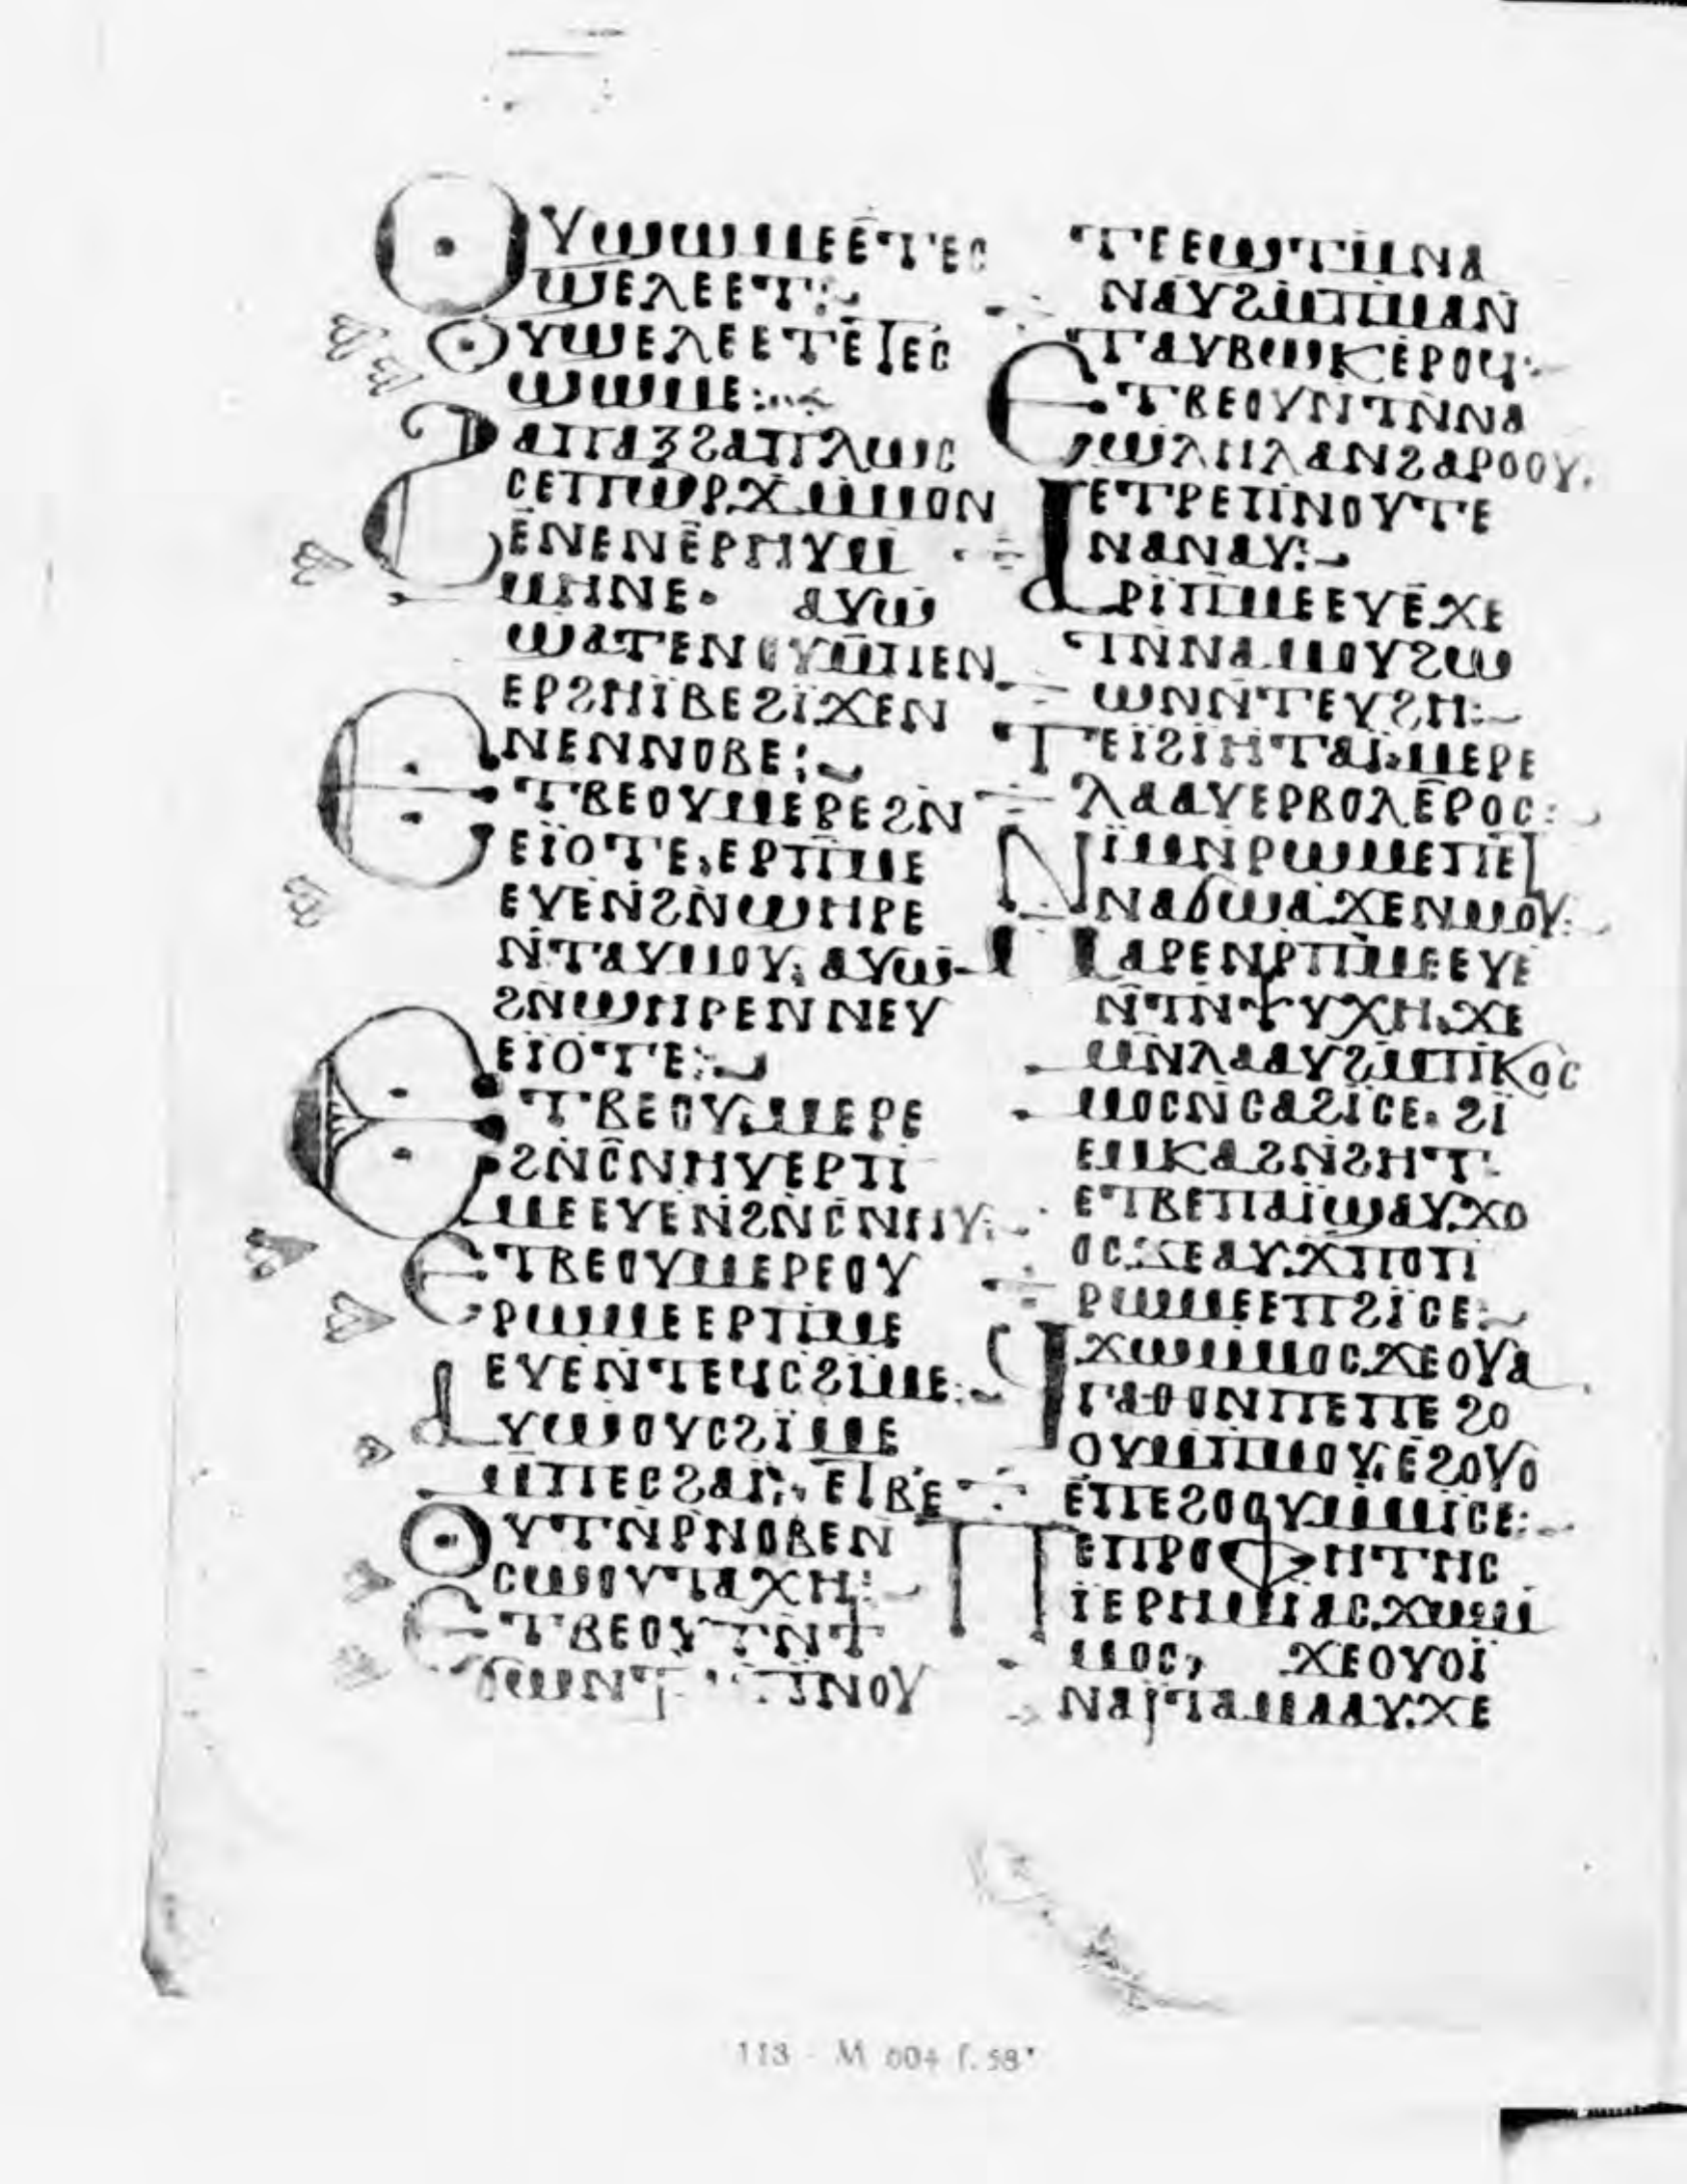 ⲞⲨϢⲰⲘⲈⲈ̄ⲦⲈⲤ
ϢⲈⲖⲈⲈⲦ:
ⲞⲨϢⲈⲖⲈⲈⲦⲈ̄ⲦⲈⲤ
ϢⲰⲘⲈ:
ϨⲀⲠⲀⲜϨⲀⲠⲖⲰⲤ
ⲤⲈⲠⲰⲢϪⲘⲘⲞⲚ
Ⲉ̄ⲚⲈⲚⲈ̄ⲢⲎⲨⲘ
ⲘⲎⲚⲈ· ⲀⲨⲰ
ϢⲀⲦⲈⲚⲞⲨⲘ̄ⲠⲈⲚ
ⲈⲢϨⲎⲒ̈ⲂⲈϨⲒ̈ϪⲈⲚ
ⲚⲈⲚⲚⲞⲂⲈ:
ⲈⲦⲂⲈⲞⲨⲘⲈⲢⲈϨⲚ̄
ⲈⲒ̈ⲞⲦⲈ·ⲈⲢⲠⲘⲈ
ⲈⲨⲈⲚ̇ϨⲚ̇ϢⲎⲢⲈ
Ⲛ̇ⲦⲀⲨⲘⲞⲨ· ⲀⲨⲰ
ϨⲚ̄ϢⲎⲢⲈⲚⲚⲈⲨ
ⲈⲒ̈ⲞⲦⲈ:
ⲈⲦⲂⲈⲞⲨ·ⲘⲈⲢⲈ
ϨⲚ̇Ⲥ̄ⲚⲎⲨⲈⲢⲠⲒ
ⲘⲈⲈⲨⲈⲚ̇ϨⲚ̇Ⲥ̄ⲚⲎⲨ:
ⲈⲦⲂⲈⲞⲨⲘⲈⲢⲈⲞⲨ
ⲢⲰⲘⲈⲈⲢⲠⲘⲈ
ⲈⲨⲈⲚ̇ⲦⲈϤⲤϨⲒ̈ⲘⲈ:
ⲀⲨⲰⲞⲨⲤϨⲒ̈ⲘⲈ
Ⲙ̄ⲠⲈⲤϨⲀⲒ̈: ⲈⲦⲂⲈ
ⲞⲨⲦⲚ̇ⲢⲚⲞⲂⲈⲚ
ⲤⲰⲞⲨⲦⲀϪⲎ:
ⲈⲦⲂⲈⲞⲨⲦⲚ̄ϯ
ϬⲰⲚⲦ ⲠⲚⲞⲨ
ⲦⲈⲈϢⲦⲘ̄ⲚⲀ
ⲚⲀⲨϨⲘ̄ⲠⲘⲀⲚ̇
ⲦⲀⲨⲂⲰⲔⲈ̇ⲢⲞϤ:
ⲈⲦⲂⲈⲞⲨⲚⲦⲚ̄ⲚⲀ
ϢⲖⲎⲖⲀⲚϨⲀⲢⲞⲞⲨ.
ⲈⲦⲢⲈⲠⲚ̇ⲞⲨⲦⲈ
ⲚⲀⲚⲀⲨ:
ⲀⲢⲒ̈ⲠⲘⲈⲈⲨⲈ̄ϪⲈ
ⲦⲚ̄ⲚⲀⲘⲞⲨϨⲰ
ⲰⲚⲚ̇ⲦⲈⲨϨⲎ:
ⲦⲈⲒ̈ϨⲒ̈ⲎⲦⲀⲒ̈·ⲘⲈⲢⲈ
ⲖⲀⲀⲨⲈⲢⲂⲞⲖⲈ̄ⲢⲞⲤ:
ⲚⲒ̈ⲘⲚ̇ⲢⲰⲘⲈⲠⲈⲦ
ⲚⲀϬⲰⲀ̇ϪⲈⲚⲘⲞⲨ:
ⲘⲀⲢⲈⲚⲢⲠⲘ̇ⲈⲈⲨⲈ
Ⲛ̄ⲦⲚ̄ⲮⲨⲬⲎ·ϪⲈ
ⲘⲚ̇ⲖⲀⲀⲨϨⲘ̄ⲠⲔⲞⲤ
ⲘⲞⲤⲚ̇ⲤⲀϨⲒ̈ⲤⲈ· ϨⲒ̈
ⲈⲘⲔⲀϨⲚ̇ϨⲎⲦ·
ⲈⲦⲂⲈⲠⲀⲒ̈ϢⲀⲨϪⲞ
ⲞⲤϪⲈⲀⲨϪⲠⲞⲠⲒ
ⲢⲰⲘⲈⲈⲠϨⲒ̈ⲤⲈ:
ϤϪⲰⲘⲘⲞⲤϪⲈⲞⲨⲀ
ⲄⲀⲐⲞⲚⲠⲈⲠⲈϨⲞ
ⲞⲨⲘ̄ⲠⲘⲞⲨ·Ⲉ̄ϨⲞⲨⲞ
Ⲉ̇ⲠⲈϨⲞⲞⲨⲘ̇ⲘⲒ̈ⲤⲈ:
ⲠⲈⲠⲢⲞⲪⲎⲦⲎⲤ
Ⲓ̈ⲈⲢⲎⲘⲒ̈ⲀⲤϪⲰⲘ
ⲘⲞⲤ, ϪⲈⲞⲨⲞⲒ̈
ⲚⲀⲒ̈ⲦⲀⲘⲀⲀⲨ·ϪⲈ
113 - M 604 f.58ᵛ